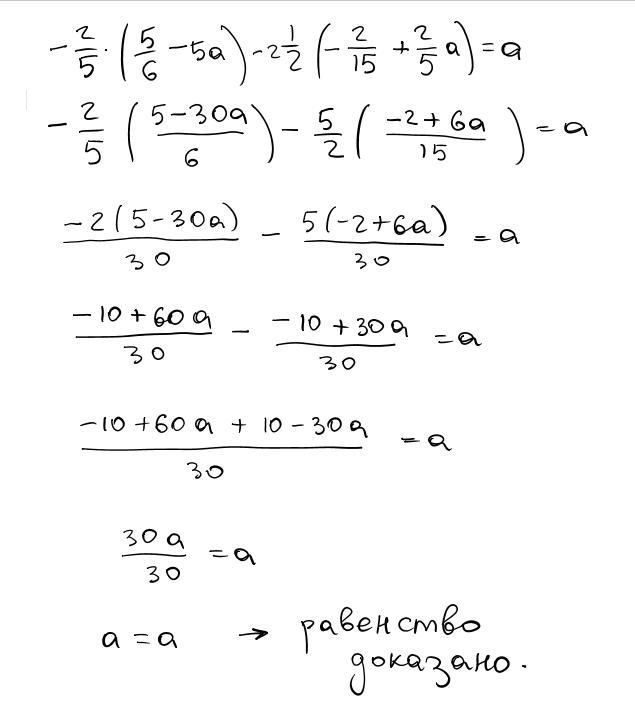 -2/5 · (5/6 - 5a) - 2 1/2 (-2/15 + 2/5 a) = a
-2/5 ((5-30a)/6) - 5/2 ((-2+6a)/15) = a
(-2(5-30a))/30 - (5(-2+6a))/30 = a
(-10+60a)/30 - (-10+30a)/30 = a
(-10+60a+10-30a)/30 = a
30a/30 = a
a = a → равенство
доказано.